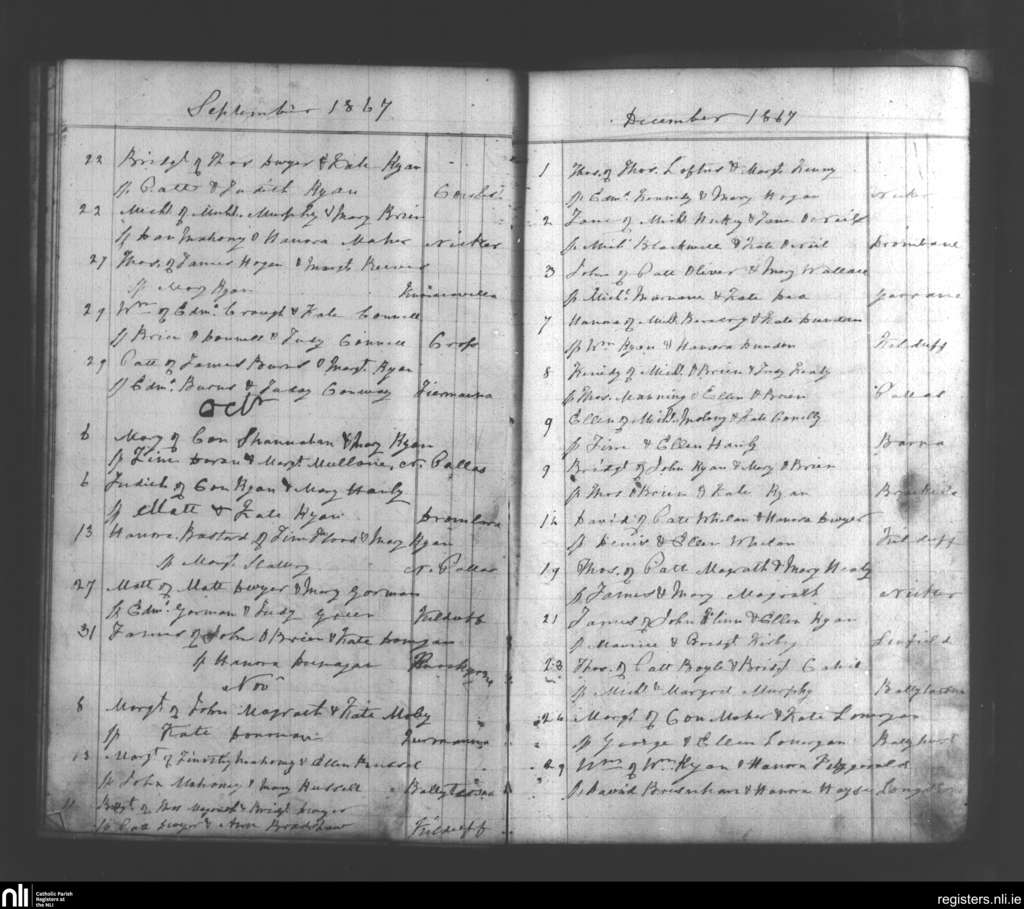 September 1867
22 Bridgt of Thos Dwyer & Kate Ryan
sp Patt & Judith Ryan
22 Michl of Michl Murphy & Mary Brien
sp Dan Mahony & Hanora Maher Nicker
27 Thos. of James Hogan & Margt
sp Mary Ryan
29 Wm of Edmd Crough & Kate Connell
sp Brien O Donnell & Judy Connell Cross
29 Patt of James Burns & Margt Ryan
sp Edmd Burns & Juday Conway
Octr
6 Mary of Con Shannahan & Mary Ryan
sp Tim & Margt Mullone, N. Pallas
6 Judith of Con Ryan & Mary Hanly
sp Matt & Kate Ryan
13 Hanora Bastard of Tim Flood & Mary Ryan
sp Margt Slattery N. Pallas
27 Matt of Matt Dwyer & Mary Gorman
sp Edmd Gorman & Judy Green Kilduff
31 James of John O Brien & Kate
sp Hanora
Novr
8 Margt of John Magrath & Kate
sp Kate
13 Margt of Timothy Mahony & Ellen Russel
sp John Mahoney & Mary Russell
Bridgt of Thos Magrath & Bridgt Dwyer
sp Patt Dwyer & Ann Bradshaw Kilduff
December 1867
1 Thos. of Thos. Loftus & Margt Kenny
sp Edmd Kennedy & Mary Hogan Nicker
2 Jane of Michl & Jane O Neill
sp Michl Blackwell & Kate O Neil Drombane
3 John of Patt Oliver & Mary Wallace
sp Michl Marnane & Kate Garrane
7 Hanora of Michl & Kate Dundon
sp Wm Ryan & Hanora Dundon Kilduff
8 of Michl O Brien & Judy Healy
sp Thos. Manning & Ellen O Brien Pallas
9 Ellen of Michl & Kate
sp Tim & Ellen Hanly Barna
9 Bridgt of John Ryan & Mary O Brien
sp Thos O Brien & Kate Ryan
David of Patt Whelan & Hanora Dwyer
sp Denis & Ellen Whelan Kilduff
19 Thos. of Patt Magrath & Mary Healy
sp James & Mary Magrath Nicker
21 James of John Flinn & Ellen Ryan
sp Maurice & Bridgt Kirby Linfield
23 Thos. of Patt Boyle & Bridgt Cahil
sp Michl & Margret Murphy
26 Margt of Con Maher & Kate Lonergan
sp George & Ellen Lonergan
29 Wm of Wm Ryan & Hanora Fitzgerald
sp David & Hanora Hayes
nli
Catholic Parish
Registers at
the NLI
registers.nli.ie